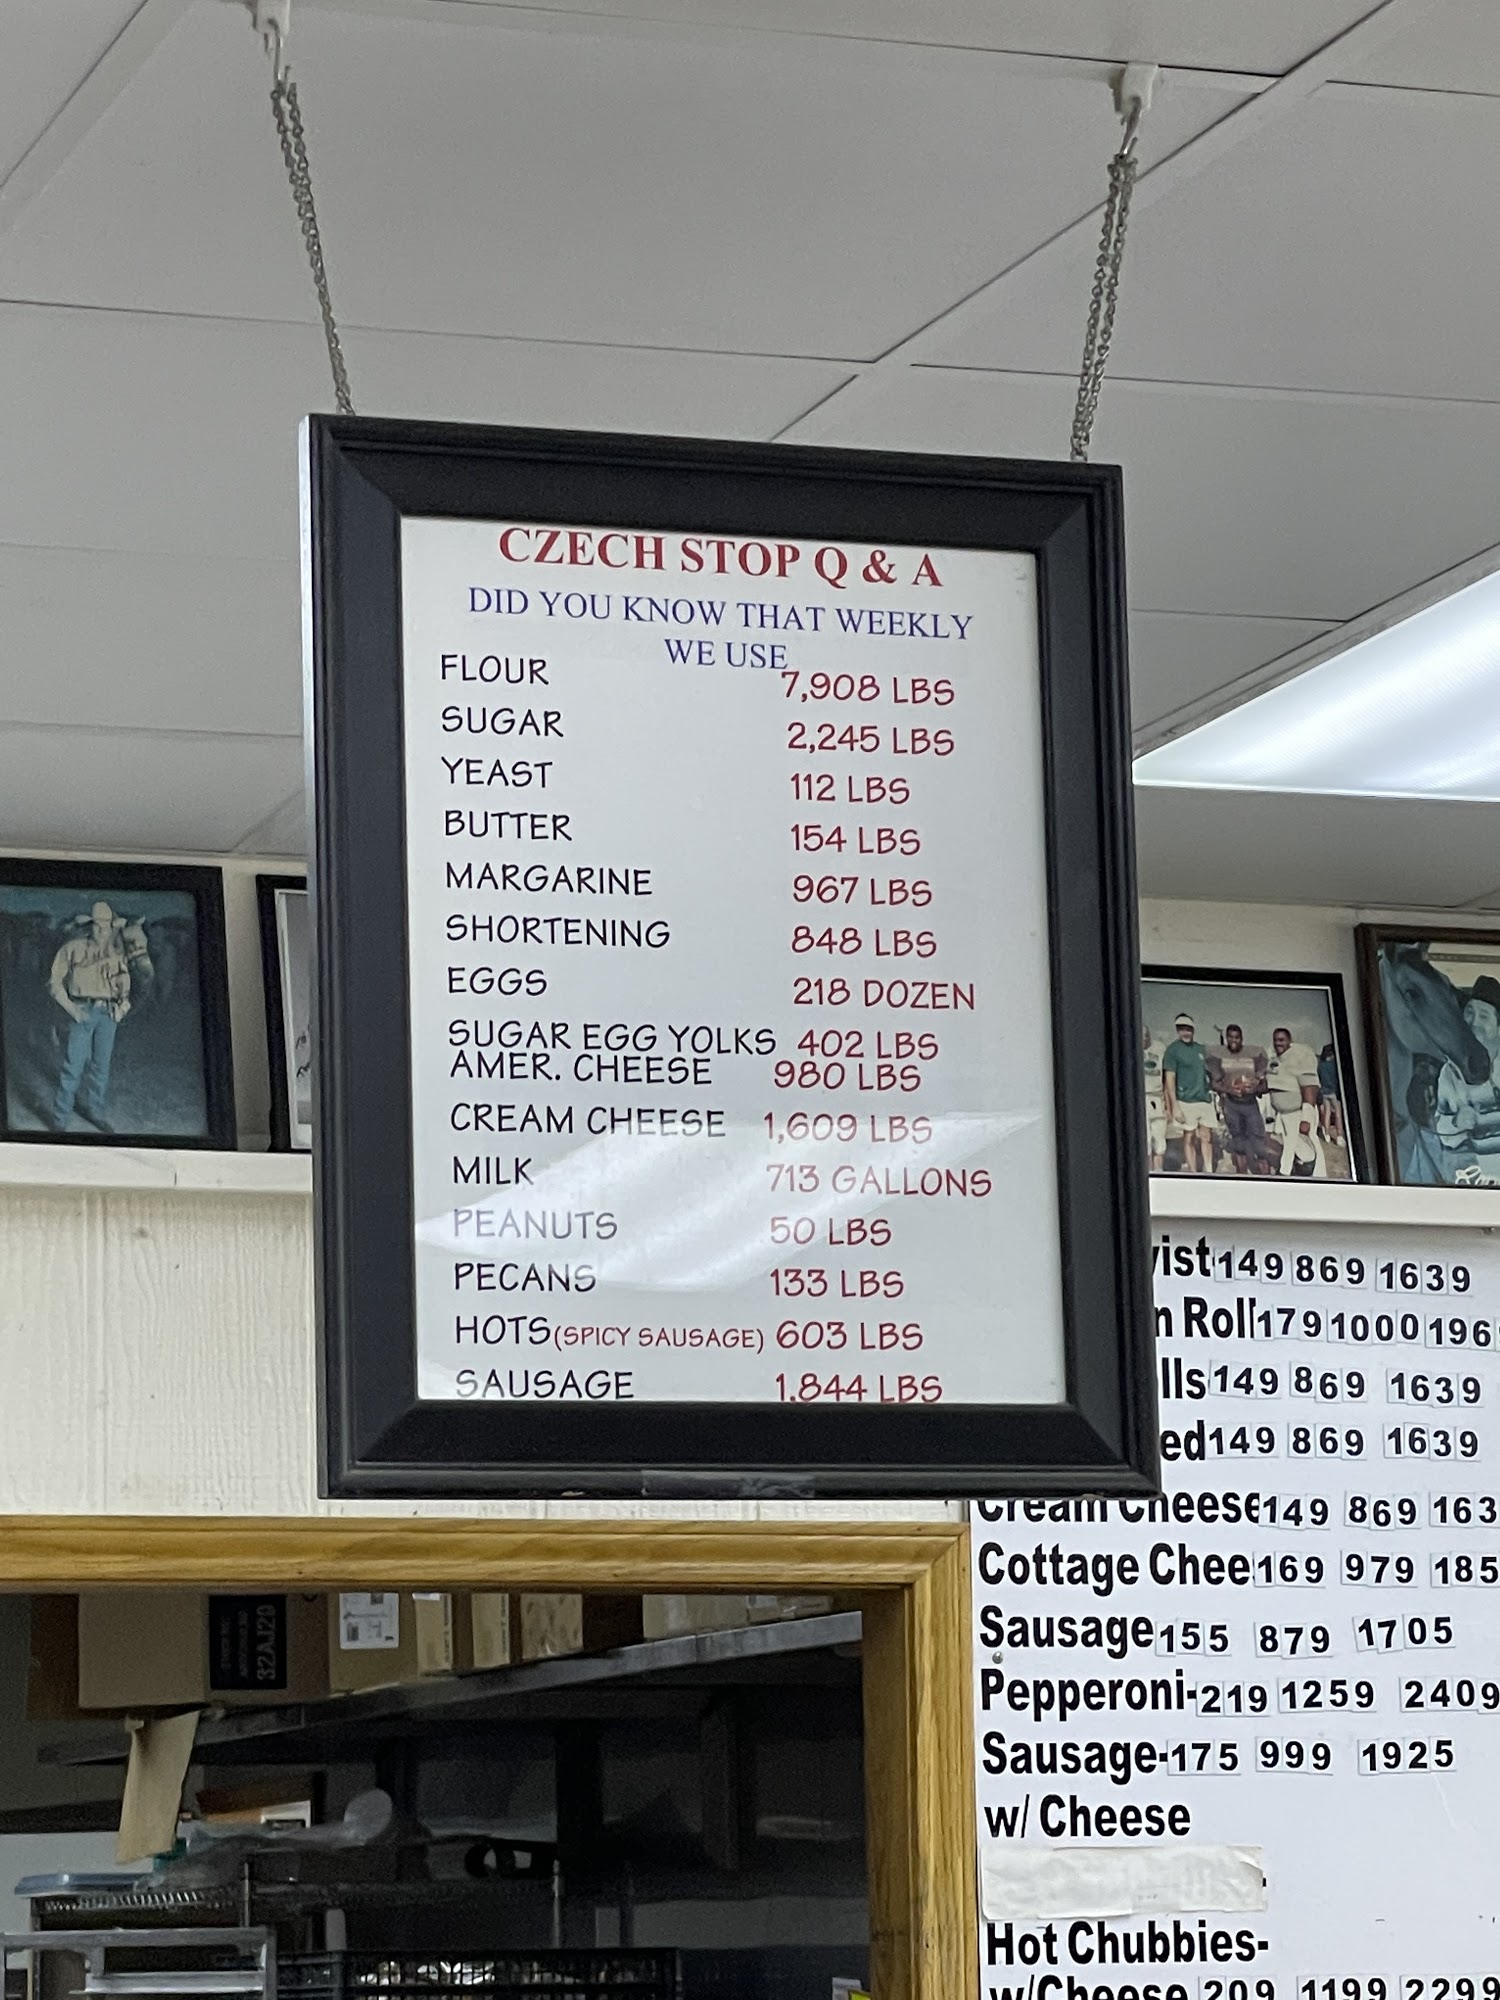 CZECH STOP Q & A
DID YOU KNOW THAT WEEKLY
WE USE
FLOUR 7,908 LBS
SUGAR 2,245 LBS
YEAST 112 LBS
BUTTER 154 LBS
MARGARINE 967 LBS
SHORTENING 848 LBS
EGGS 218 DOZEN
SUGAR EGG YOLKS 402 LBS
AMER. CHEESE 980 LBS
CREAM CHEESE 1,609 LBS
MILK 713 GALLONS
PEANUTS 50 LBS
PECANS 133 LBS
HOTS (SPICY SAUSAGE) 603 LBS
SAUSAGE 1,844 LBS
ist 149 869 1639
n Roll 179 1000 196
lls 149 869 1639
ed 149 869 1639
Cream Cheese 149 869 163
Cottage Chee 169 979 185
Sausage 155 879 1705
Pepperoni- 219 1259 2409
Sausage- 175 999 1925
w/ Cheese
Hot Chubbies-
w/Cheese 209 1199 2299
32AJ20